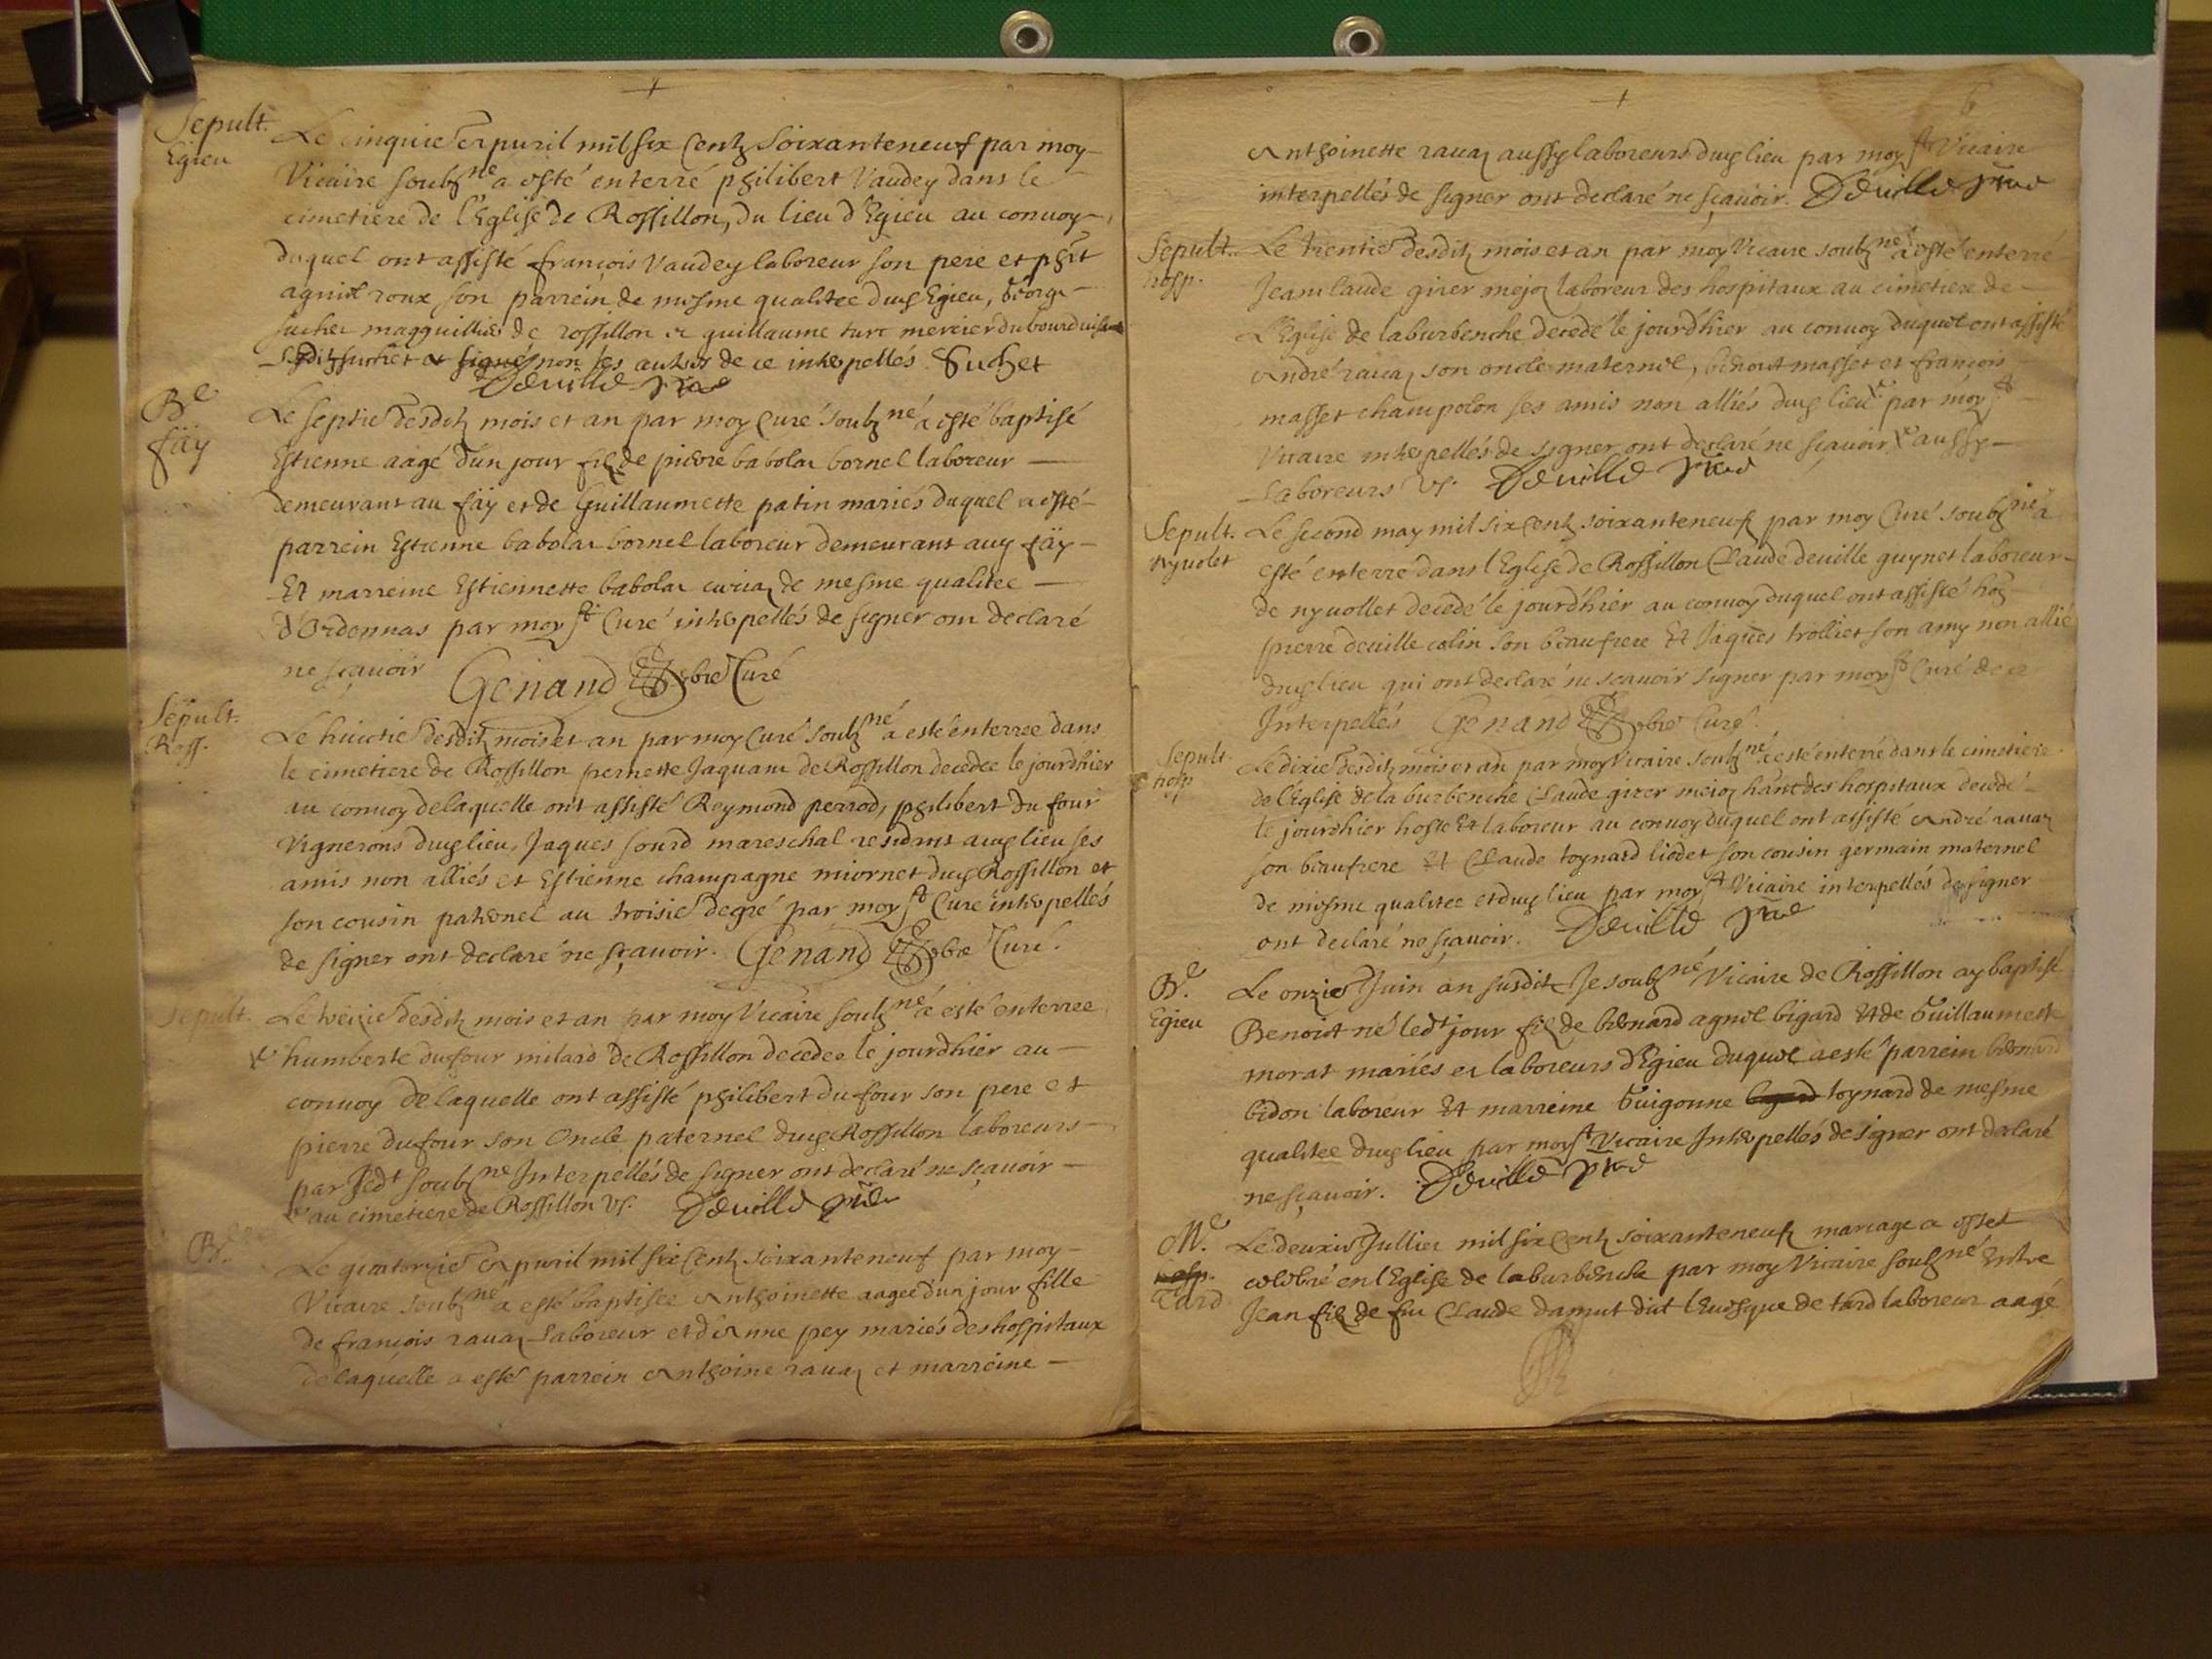 Sepult.
Egieu
Le cinquie Apuril mil six centz soixanteneuf par moy
Vicaire soubzné a esté enterré philibert Vaudey dans le
cimetiere de l'Eglise de Rossillon, du lieu d'Egieu au convoy
duquel ont assisté françois Vaudey laboreur son pere et
roux son parrein de mesme qualitee dud Egieu, George
suchet magguillier de rossillon et guillaume turc mercier
ledit suchet a signé non les autres de ce interpelles. Suchet
Deuille
Be
fäy
Le septie desditz mois et an par moy Curé soubzné a esté baptisé
Estienne aagé d'un jour filz de pierre babolat bornel laboreur
demeurant au fäy et de Guillaumette patin mariés duquel a esté
parrein Estienne babolat bornel laboreur demeurant aud fäy
Et marreine Estiennette babolat de mesme qualitee
d'Ordonnas par moy st Curé interpellés de signer ont declaré
ne sçauoir Genand Pbre Curé
Sepult.
Ross.
Le huictie desditz mois et an par moy Curé soubzné a esté enterree dans
le cimetiere de Rossillon pernette Jaquant de Rossillon decedee le jourdhier
au convoy delaquelle ont assisté Reymond perrod, philibert du four
Vignerons dudlieu, Jaques sourd mareschal residant audlieu ses
amis non alliés et Estienne champagne miornet dud Rossillon et
son cousin paternel au troisie degré par moy st Curé interpellés
de signer ont declaré ne sçauoir. Genand Pbre Curé.
Sepult.
Le treizie desditz mois et an par moy Vicaire soubzné a esté enterree
humberte dufour milard de Rossillon decedee le jourdhier au
convoy delaquelle ont assisté philibert du four son pere et
pierre dufour son Oncle paternel dud Rossillon laboreurs
par Ledt soubzne Interpellés de signer ont declaré ne sçauoir
au cimetiere de Rossillon Vs. Deuille
Be
Le quatorzie Apuril mil six centz soixanteneuf par moy
Vicaire soubzné a esté baptisee Anthoinette aagee d'un jour fille
de françois rauaz Laboreur et d'Anne pey mariés des hospitaux
delaquelle a esté parrein Anthoine rauaz et marreine
6
Anthoinette rauaz aussy laboreurs dudlieu par moy st Vicaire
interpellés de signer ont declaré ne sçauoir. Deuille
Sepult.
hosp.
Le trentie desditz mois et an par moy Vicaire soubzné a esté enterré
Jeanclaude girer mejoz laboreur des hospitaux au cimetiere de
L'Eglise de laburbenche decedé le jourdhier au convoy duquel ont assisté
André rauaz son oncle maternel, benoit masset et françois
masset champolon ses amis non alliés dud lieu par moy st
Vicaire interpellés de signer ont declaré ne sçauoir aussy
Laboreurs Vs. Deuille
Sepult.
nyuolet
Le second may mil six centz soixanteneuf par moy Curé soubzné a
esté enterré dans l'Eglise de Rossillon Claude deuille guynet laboreur
de nyuollet decedé le jourdhier au convoy duquel ont assisté
pierre deuille colin son beaufrere Et Jaques trolliet son amy non allié
dudlieu qui ont declaré ne sçauoir signer par moy st Curé de ce
Interpellés Genand Pbre Curé.
Sepult
hosp
Le dixie desditz mois et an par moy Vicaire soubzné a esté enterré dans le cimetiere
de l'Eglise de la burbenche Claude girer meioz des hospitaux decedé
le jourdhier hoste Et laboreur au convoy duquel ont assisté André rauaz
son beaufrere Et Claude toynard liodet son cousin germain maternel
de mesme qualitee et dudlieu par moy st Vicaire interpellés de signer
ont declaré ne sçauoir. Deuille
Be.
Egieu
Le onzie Juin an susdit Je soubzné Vicaire de Rossillon ay baptisé
Benoist né ledt jour filz de bernard agniel bigard Et de Guillaumette
morat mariés et laboreurs d'Egieu duquel a esté parrein bernard
bidon laboreur Et marreine Guigonne toynard de mesme
qualitee dudlieu par moy st Vicaire Interpellés de signer ont declaré
ne sçauoir. Deuille
Me.
hosp.
Tard
Le deuxie Jullier mil six centz soixanteneuf mariage a esté
celebré en l'Eglise de laburbenche par moy Vicaire soubzné Entre
Jean filz de feu Claude damut dit l'Euesque de tard laboreur aagé